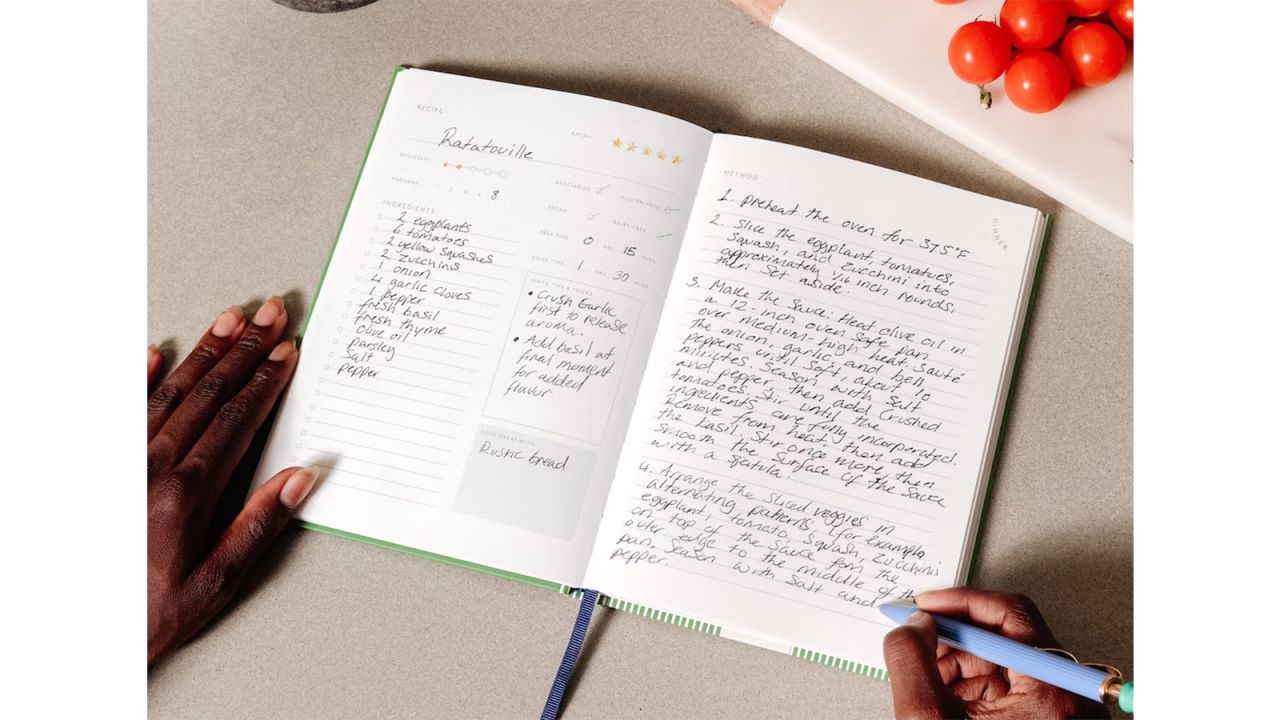 RECIPE
Ratatouille
RATING
DIFFICULTY
PORTIONS
8
VEGETARIAN
GLUTEN-FREE
VEGAN
DAIRY-FREE
PREP TIME 0 HRS 15 MINS
COOK TIME 1 HRS 30 MINS
INGREDIENTS
2 eggplants
6 tomatoes
2 yellow squashes
2 zucchinis
1 onion
4 garlic cloves
1 pepper
fresh basil
fresh thyme
olive oil
parsley
salt
pepper
HINTS, TIPS & TRICKS
• Crush Garlic
first to release
aroma.
• Add basil at
final moment
for added
flavor
GOES GREAT WITH
Rustic bread
METHOD
DINNER
1. preheat the oven for 375°F
2. Slice the eggplant, tomatoes,
Squash, and Zucchini into
approximately 1/16 inch rounds,
then set aside.
3. Make the sauce: Heat olive oil in
a 12-inch oven safe pan
over medium-high heat. Sauté
the onion, garlic, and bell
peppers until soft, about 10
minutes. Season with salt
and pepper, then add crushed
tomatoes. Stir until the
ingredients are fully incorporated.
Remove from heat, then add
the basil. Stir once more, then
smooth the surface of the sauce
with a spatula.
4. Arrange the sliced veggies in
alternating patterns, (for example,
eggplant, tomato, squash, zucchini)
on top of the sauce from the
outer edge to the middle of the
pan. Season with salt and
pepper.